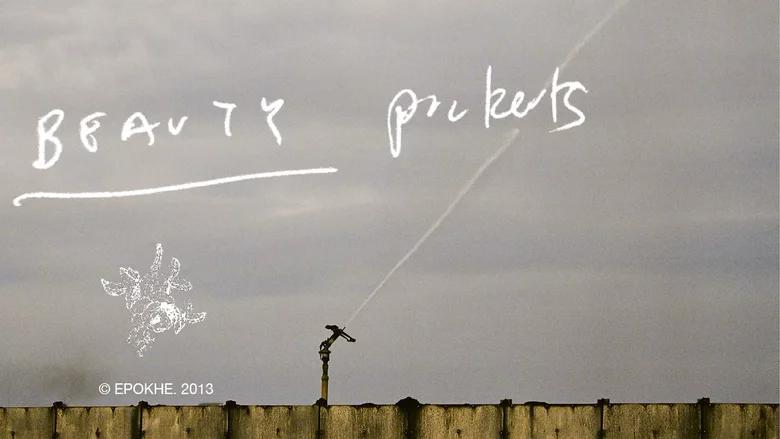 BEAUTY pockets
© EPOKHE. 2013